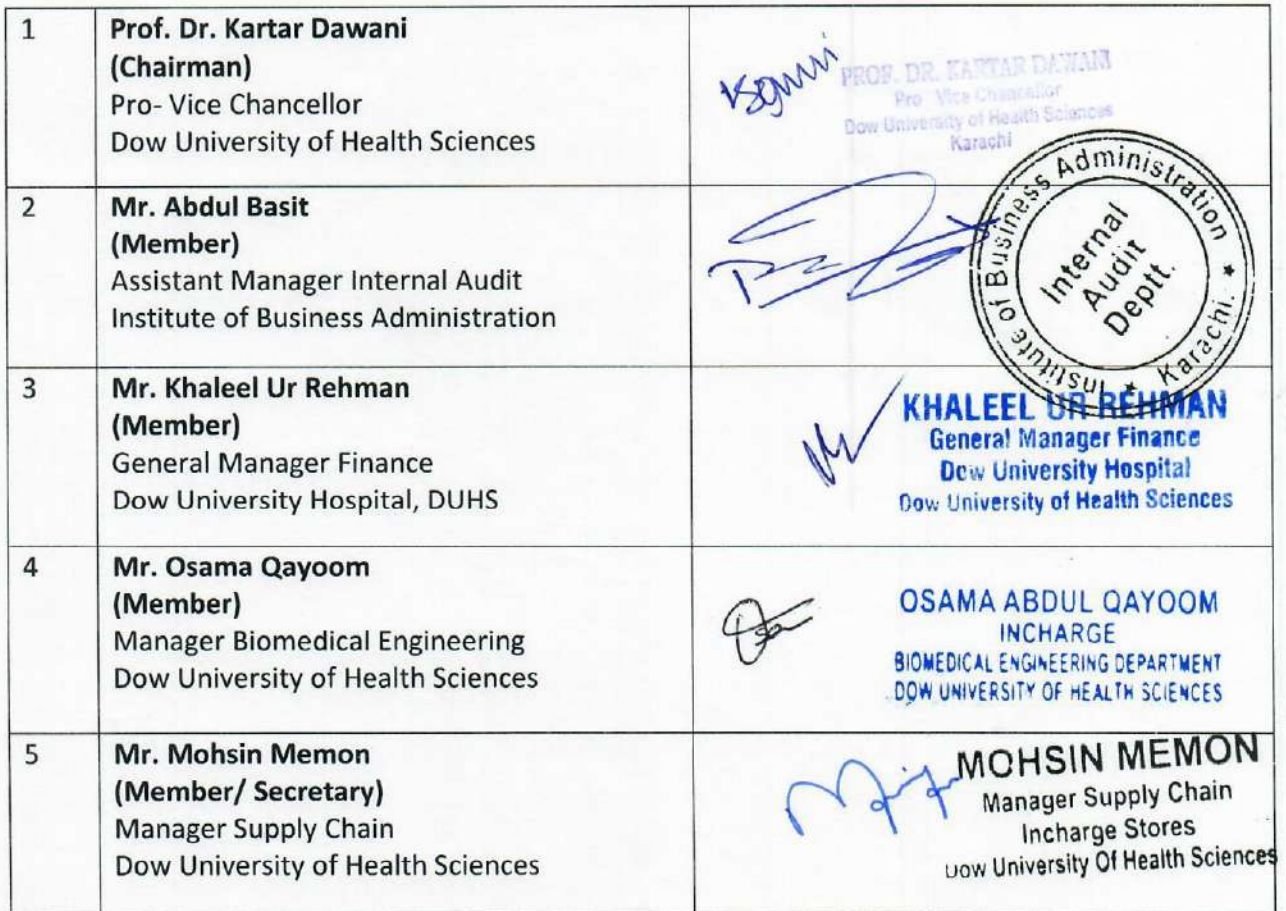 1
Prof. Dr. Kartar Dawani
(Chairman)
Pro- Vice Chancellor
Dow University of Health Sciences
PROF. DR. KARTAR DAWANI
Pro Vice Chancellor
Dow University of Health Sciences
Karachi
2
Mr. Abdul Basit
(Member)
Assistant Manager Internal Audit
Institute of Business Administration
Institute of Business Administration * Karachi. *
Internal
Audit
Deptt.
3
Mr. Khaleel Ur Rehman
(Member)
General Manager Finance
Dow University Hospital, DUHS
KHALEEL UR REHMAN
General Manager Finance
Dow University Hospital
Dow University of Health Sciences
4
Mr. Osama Qayoom
(Member)
Manager Biomedical Engineering
Dow University of Health Sciences
OSAMA ABDUL QAYOOM
INCHARGE
BIOMEDICAL ENGINEERING DEPARTMENT
DOW UNIVERSITY OF HEALTH SCIENCES
5
Mr. Mohsin Memon
(Member/ Secretary)
Manager Supply Chain
Dow University of Health Sciences
MOHSIN MEMON
Manager Supply Chain
Incharge Stores
Dow University Of Health Sciences